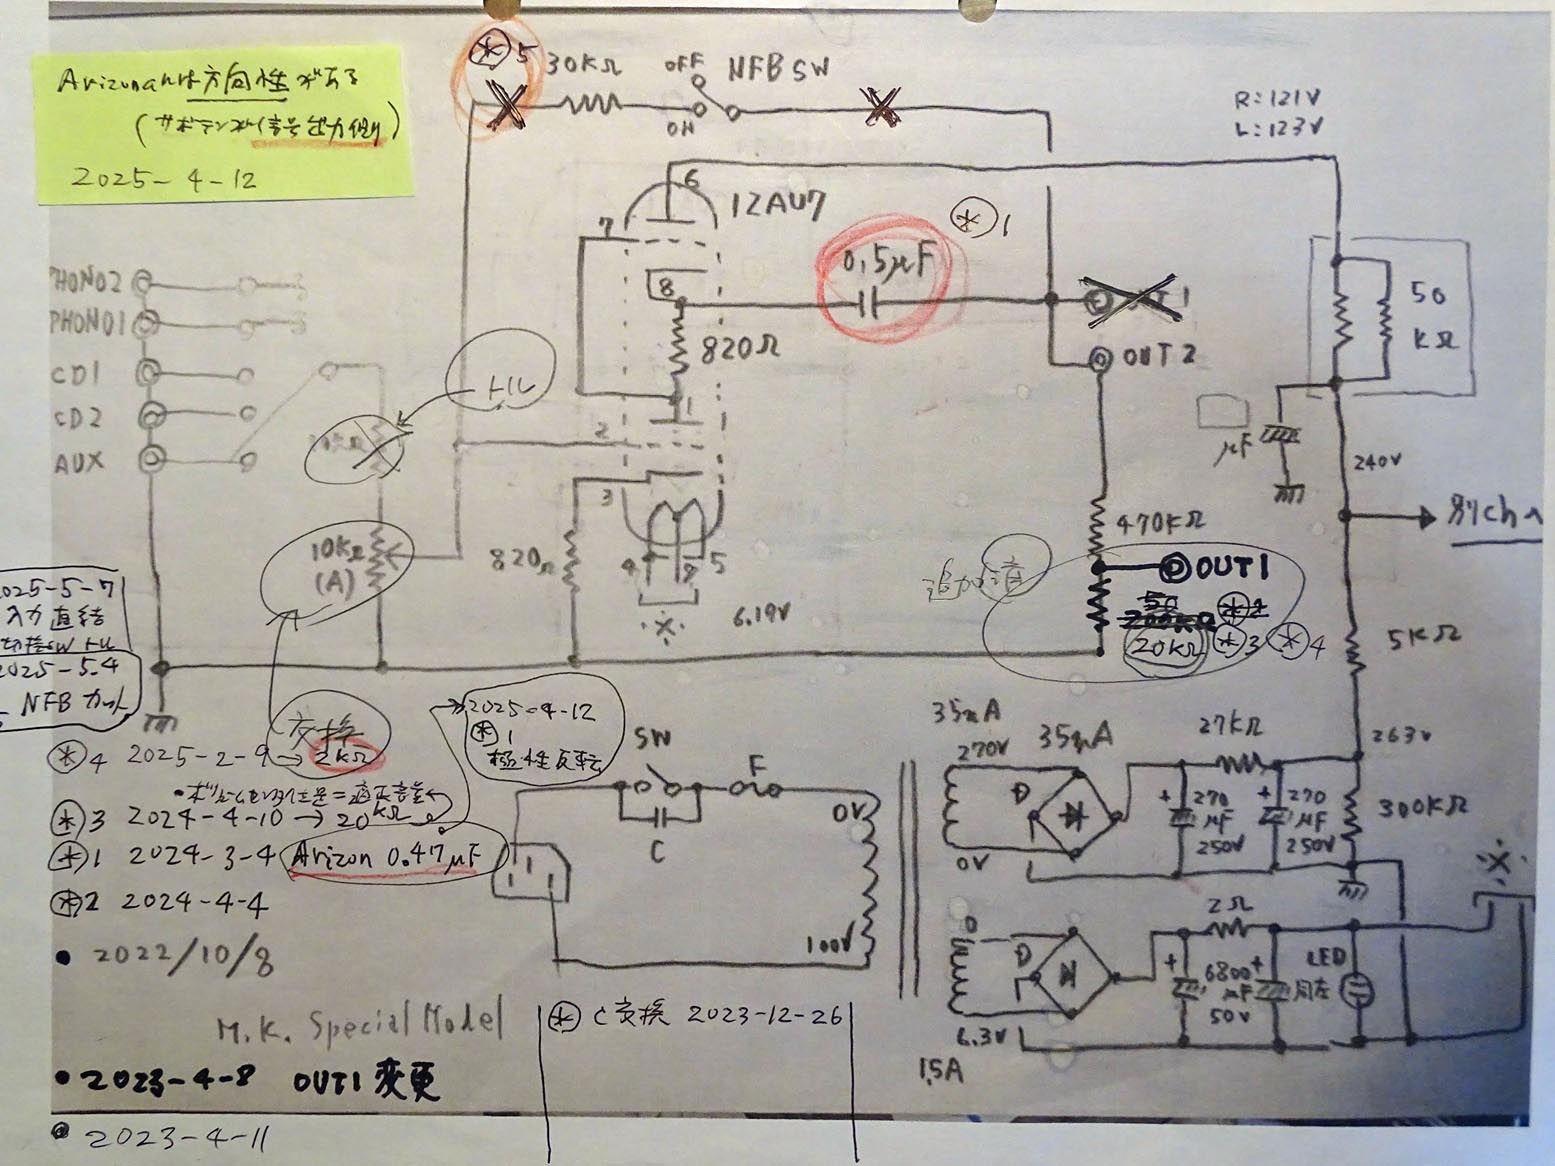 Arizonaには方向性がある
(サボテンが信号出力側)
2025-4-12
*5
30KΩ
OFF
NFB SW
ON
R:121V
L:123V
12AU7
6
7
8
0.5μF
*1
820Ω
OUT 1
OUT 2
50
KΩ
μF
240V
別ch へ
PHONO2
PHONO1
CD1
CD2
AUX
トル
1
2
3
4
5
10KΩ
(A)
820Ω
6.19V
470KΩ
OUT1
追加
50
200KΩ
20KΩ *3 *4
5KΩ
2025-5-7
入力直結
切換SWトル
2025-5.4
NFB カット
交換
*4 2025-2-9→2KΩ
*3 2024-4-10→20KΩ
*1 2024-3-4 Arizon 0.47μF
*2 2024-4-4
• 2022/10/8
M.K. Special Model
• 2023-4-8 OUT1変更
• 2023-4-11
2025-4-12
*1
極性反転
SW
F
C
0V
100V
* C交換 2023-12-26
35mA
270V
35mA
D
0V
27KΩ
263V
+
270
μF
250V
+
270
μF
250V
300KΩ
0
D
6.3V
1.5A
2Ω
+
6800
μF
50V
+
同左
LED